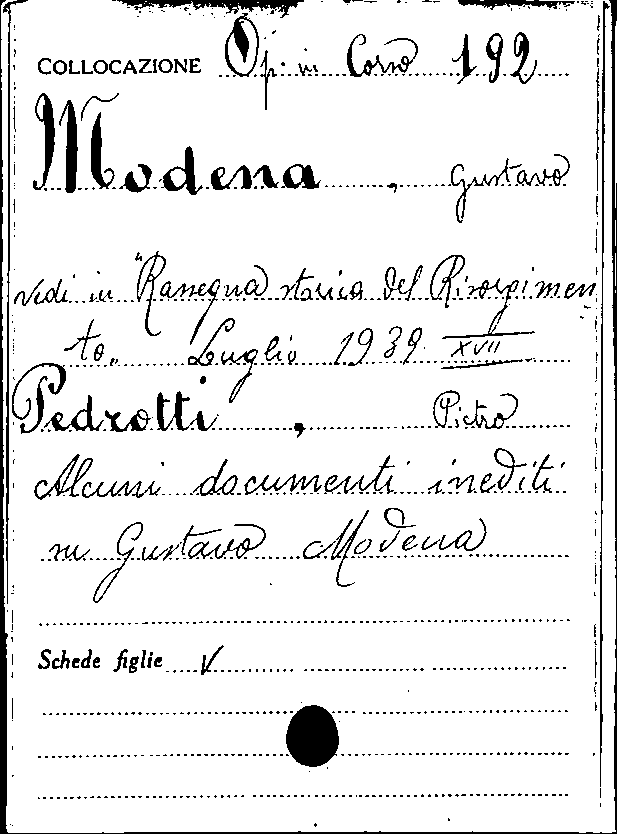 COLLOCAZIONE Op. in Corso 192
Modena, Gustavo
vedi in "Rassegna storica del Risorgimen-
to" Luglio 1939 XVII
Pedrotti, Pietro
Alcuni documenti inediti
su Gustavo Modena
Schede figlie V